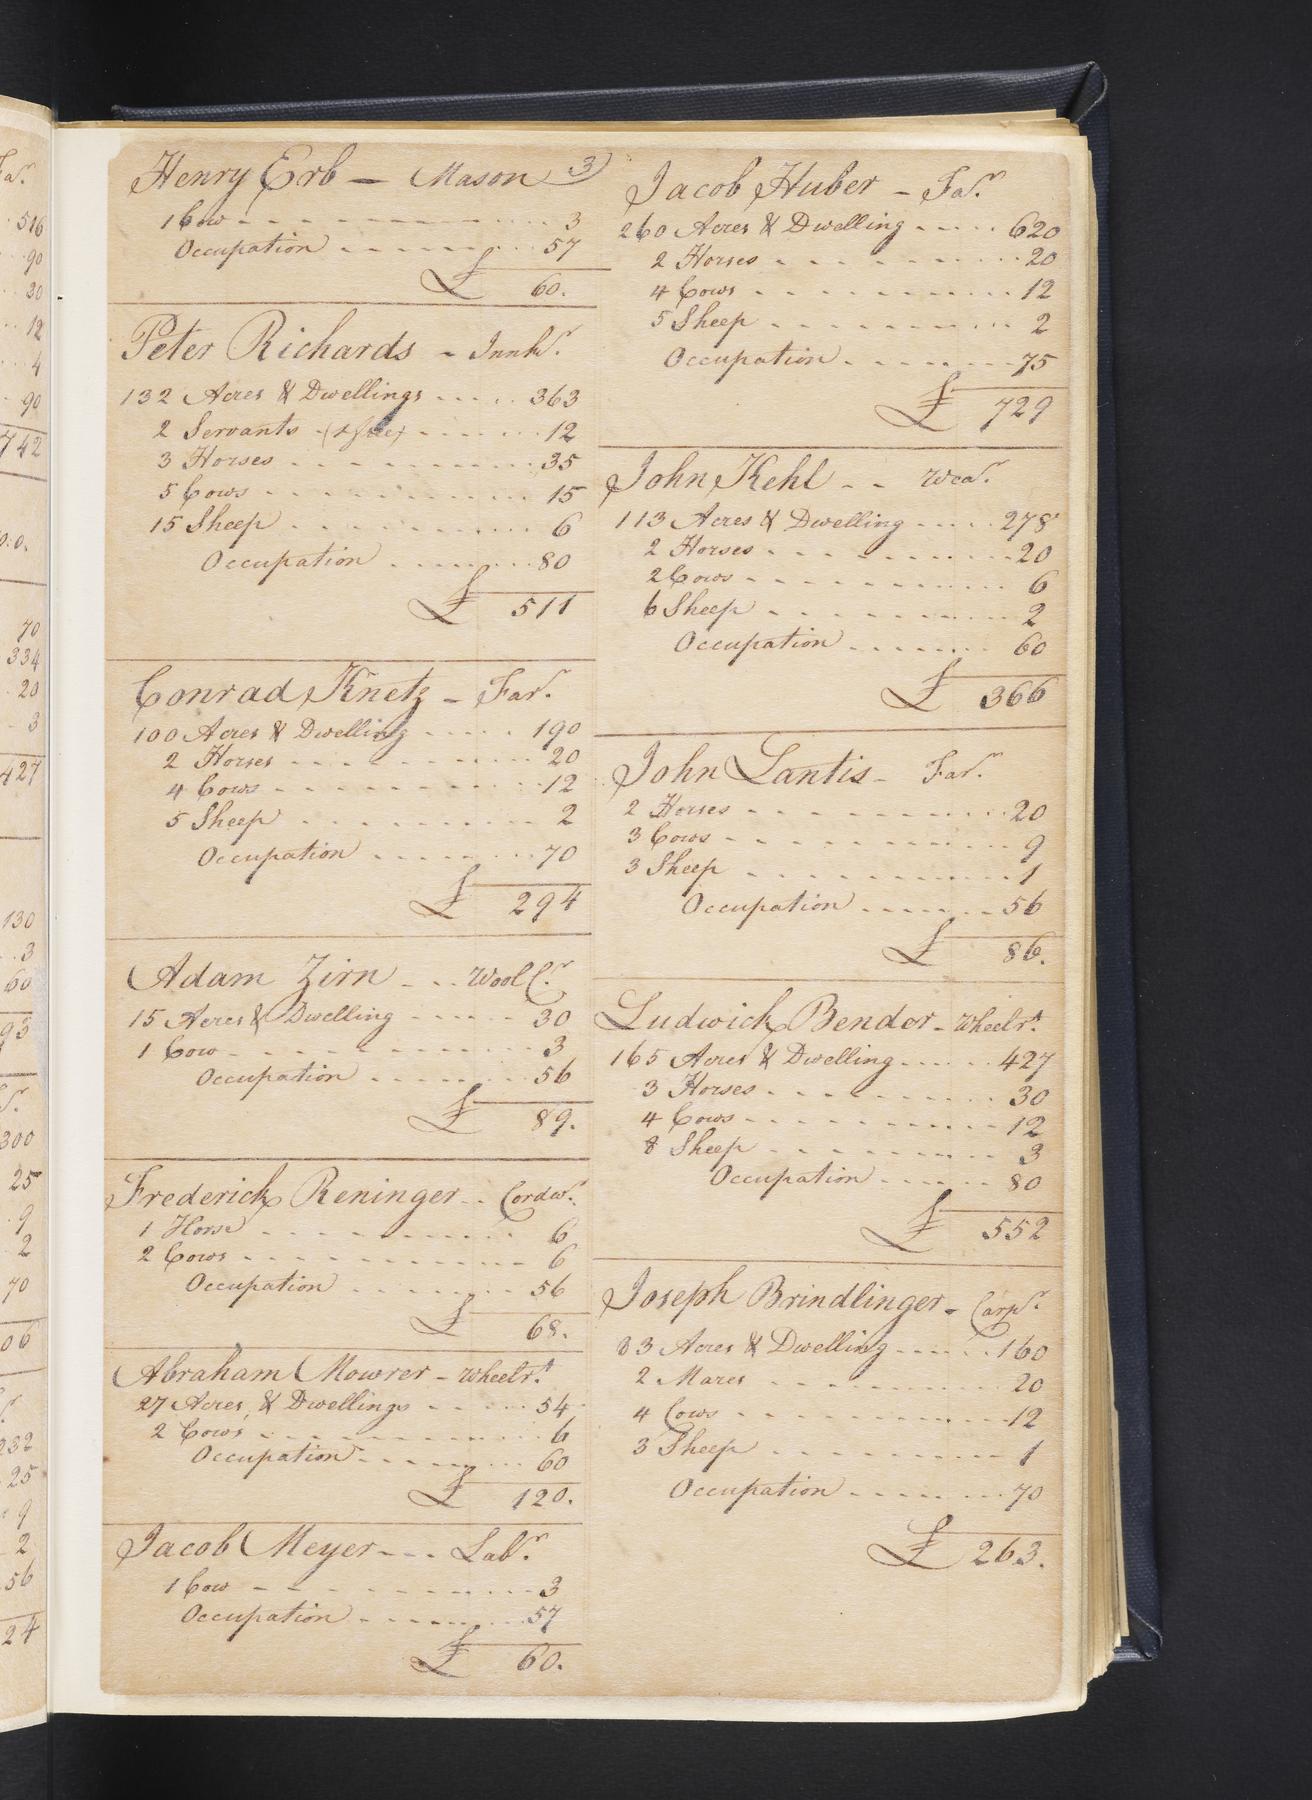 Far.
516
90
30
12
4
90
742
0.0.
70
334
20
3
427
130
3
60
93
300
25
9
2
70
06
232
25
9
2
56
24
Henry Erb — Mason 3)
1 Cow 3
Occupation 57
£ 60.
Peter Richards - Innkr.
132 Acres & Dwellings 363
2 Servants 12
3 Horses 35
5 Cows 15
15 Sheep 6
Occupation 80
£ 511
Conrad Knetz - Far.
100 Acres & Dwelling 190
2 Horses 20
4 Cows 12
5 Sheep 2
Occupation 70
£ 294
Adam Zirn - Wool Cr.
15 Acres & Dwelling 30
1 Cow 3
Occupation 56
£ 89.
Frederick Reninger - Cordwr.
1 Horse 6
2 Cows 6
Occupation 56
£ 68.
Abraham Mowrer - Wheelrt.
27 Acres & Dwellings 54
2 Cows 6
Occupation 60
£ 120.
Jacob Meyer - Labr.
1 Cow 3
Occupation 57
£ 60.
Jacob Huber - Far.
260 Acres & Dwelling 620
2 Horses 20
4 Cows 12
5 Sheep 2
Occupation 75
£ 729
John Kehl - Wear.
113 Acres & Dwelling 278
2 Horses 20
2 Cows 6
6 Sheep 2
Occupation 60
£ 366
John Lantis - Far.
2 Horses 20
3 Cows 9
3 Sheep 1
Occupation 56
£ 86.
Ludwick Bender - Wheelrt.
165 Acres & Dwelling 427
3 Horses 30
4 Cows 12
8 Sheep 3
Occupation 80
£ 552
Joseph Brindlinger - Carpr.
83 Acres & Dwelling 160
2 Mares 20
4 Cows 12
3 Sheep 1
Occupation 70
£ 263.